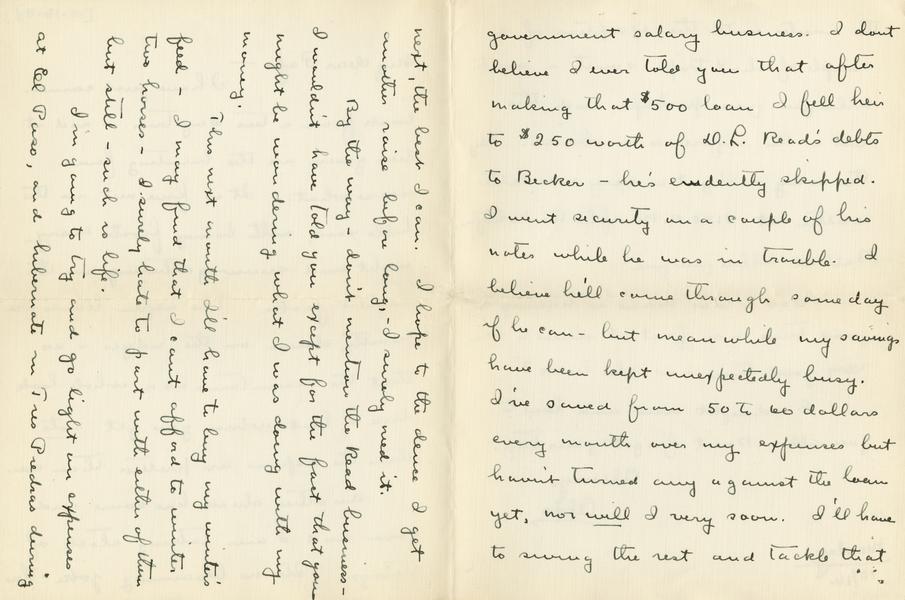 government salary business. I dont
believe I ever told you that after
making that $500 loan I fell heir
to $250 worth of D.L. Read's debts
to Becker – he's evidently skipped.
I went security on a couple of his
notes while he was in trouble. I
believe he'll come through some day
if he can – but meanwhile my savings
have been kept unexpectedly busy.
I've saved from 50 to 60 dollars
every month over my expenses but
havn't turned any against the loan
yet, nor will I very soon. I'll have
to swing the rest and tackle that
next, the best I can. I hope to the deuce I get
another raise before long, – I surely need it.
By the way – don't mention the Read business –
I wouldn't have told you except for the fact that you
might be wondering what I was doing with my
money.
This next month I'll have to buy my winter's
feed – I may find that I can't afford to winter
two horses – I surely hate to part with either of them
but still – such is life.
I'm going to try and go light on expenses
at El Paso, and hibernate in Tres Piedras during